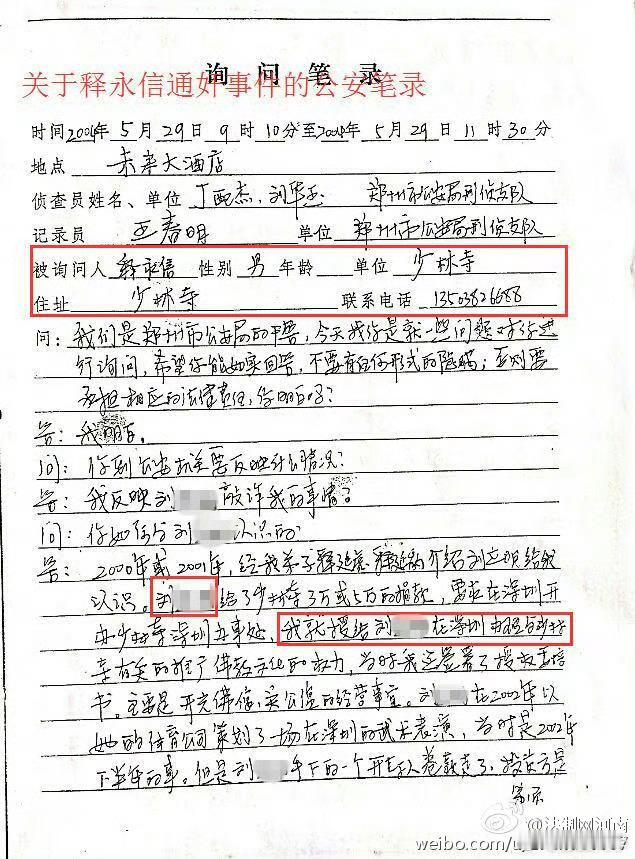 询问笔录
关于释永信通奸事件的公安笔录
时间2004年5月29日9时10分至2004年5月29日11时30分
地点 未来大酒店
侦查员姓名、单位 丁 杰、刘 郑州市公安局刑侦支队
记录员 王春明 单位 郑州市公安局刑侦支队
被询问人 释永信 性别 男 年龄 单位 少林寺
住址 少林寺 联系电话 13503826688
问：我们是郑州市公安局的干警，今天我们是就一些问题对你进
行询问，希望你能如实回答，不要有任何形式的隐瞒；否则要
承担相应的法律责任，你明白吗？
答：我明白。
问：你到公安机关要反映什么情况？
答：我反映刘 敲诈我的事情？
问：你如何与刘 认识的
答：2000年或2001年，经我弟子释延 介绍刘 给我
认识。刘 给了少林寺3万或5万的捐款，要求在深圳开
办少林寺深圳办事处，我就授给刘 在深圳办理与少林
寺有关的推广佛教文化的权力，当时我还签署了授权委培
书。主要是开光佛像、 的经营事宜。刘 在2002年以
她的体育公司策划了一场在深圳的武术表演，当时是2002年
下半年的事。但是刘 手下的一个 人卷款走了，投资方是
@法制网河南
weibo.com/u